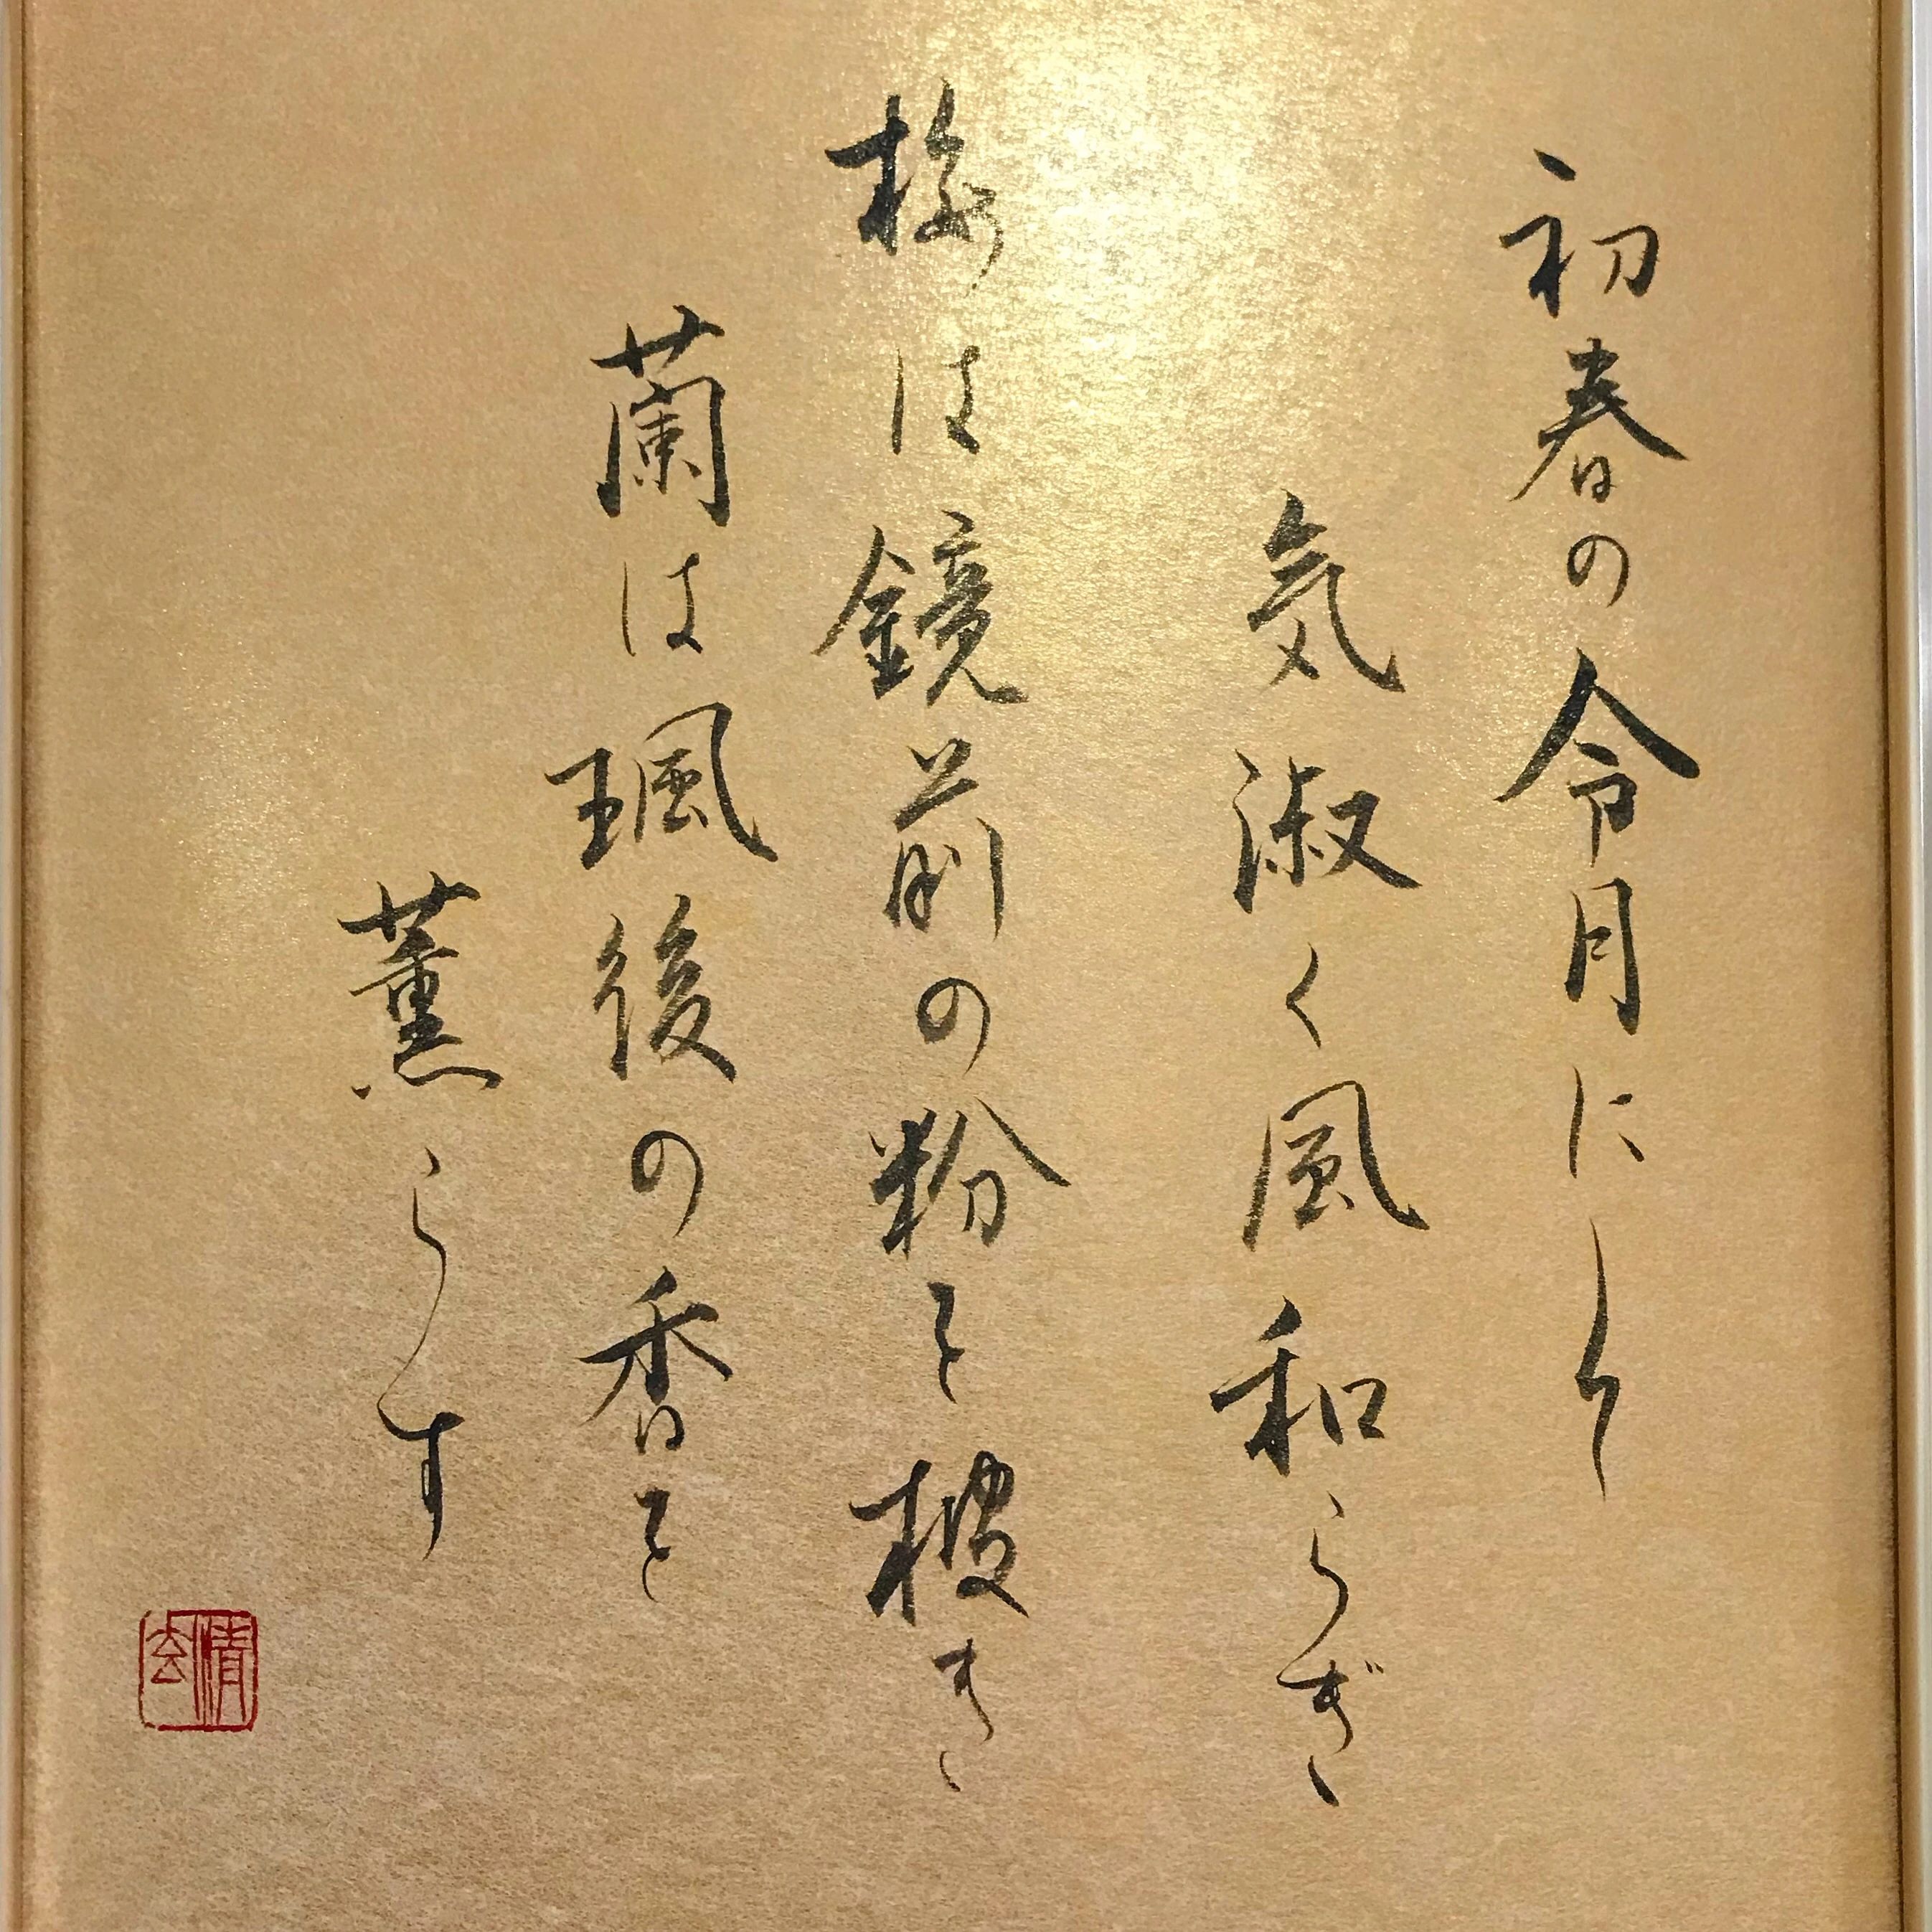 初春の令月にして
気淑く風和らぎ
梅は鏡前の粉を披き
蘭は珮後の香を
薫らす